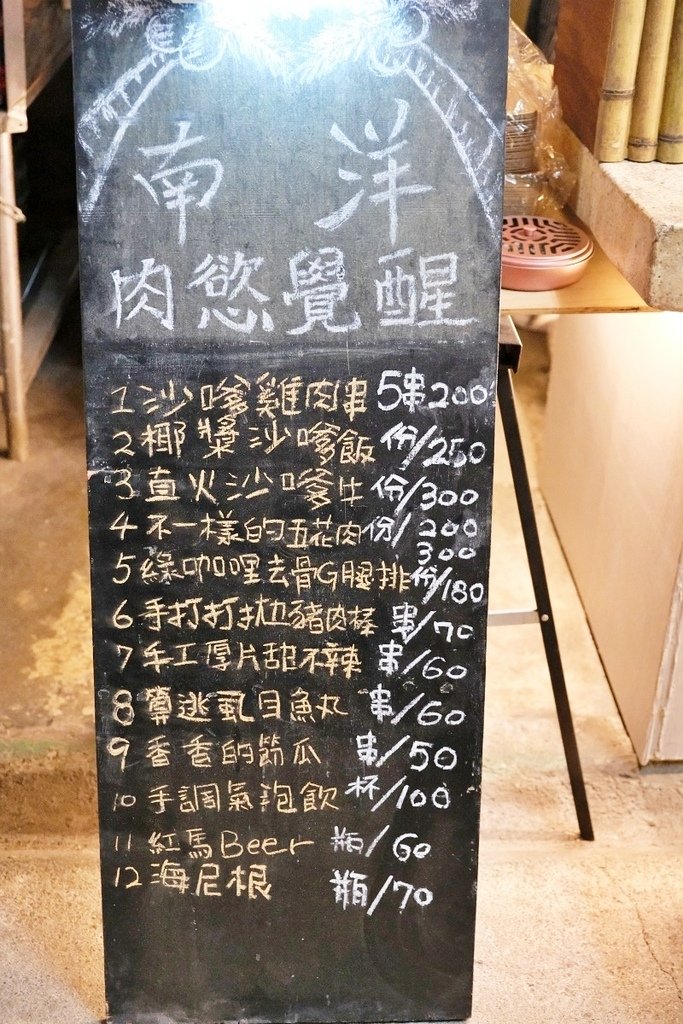 南洋
肉慾覺醒
1 沙嗲雞肉串 5串200
2 椰漿沙嗲飯 份/250
3 直火沙嗲牛 份/300
4 不一樣的五花肉 份/200
300
5 綠咖哩去骨G腿排 份/180
6 手打打拋豬肉棒 串/70
7 手工厚片甜不辣 串/60
8 逃虱目魚丸 串/60
9 香香的節瓜 串/50
10 手調氣泡飲 杯/100
11 紅馬Beer 瓶/60
12 海尼根 瓶/70